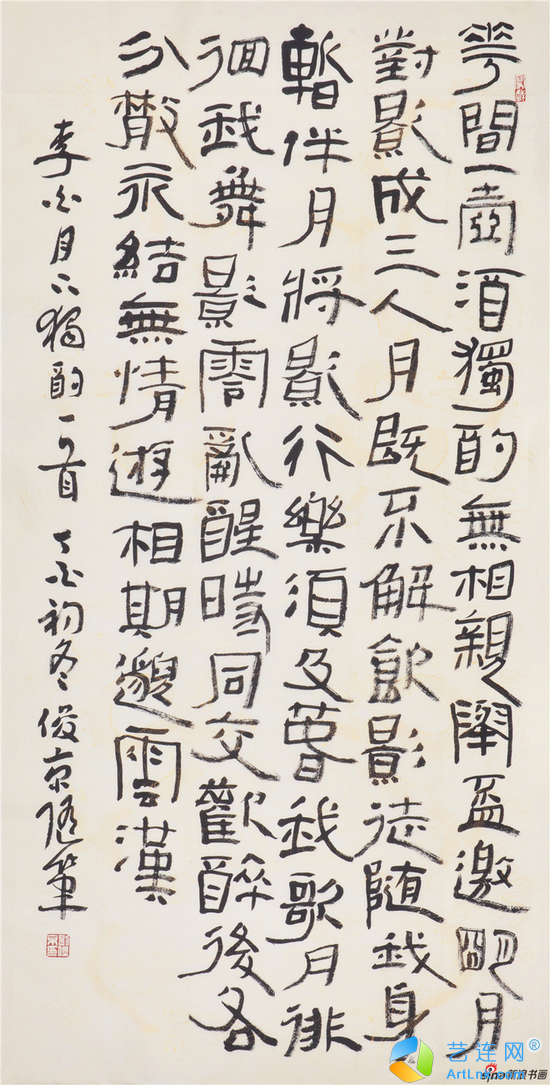 花間一壺酒獨酌無相親舉盃邀明月
對影成三人月既不解飲影徒隨我身
暫伴月將影行樂須及春我歌月徘
徊我舞影零亂醒時同交歡醉後各
分散永結無情遊相期邈雲漢
李白月下獨酌一首 丁酉初冬俊京隨筆
艺连网®
sina新浪书画